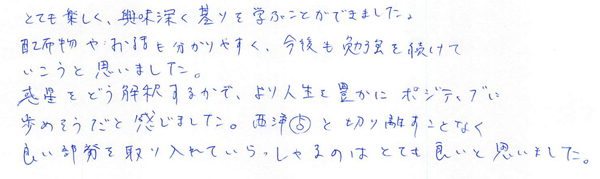 とても楽しく、興味深く基リを学ぶことができました。
配布物やお話も分かりやすく、今後も勉強を続けて
いこうと思いました。
惑星をどう解釈するかで、より人生を豊かにポジティブに
歩めそうだと感じました。西洋占と切り離すことなく
良い部分を取り入れていらっしゃるのはとても良いと思いました。